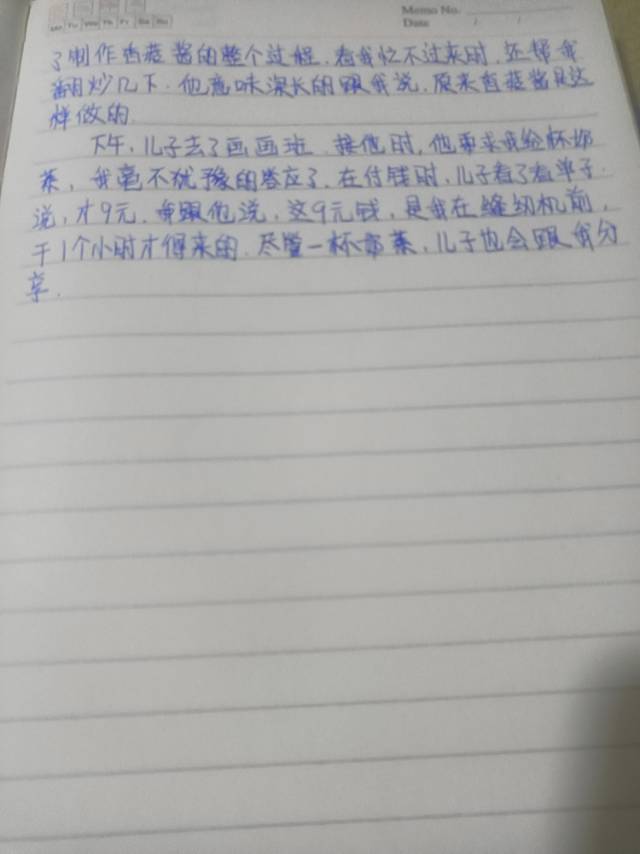 Memo No.
Mo Tu We Th Fr Sa Su
Date / /
了制作香菇酱的整个过程.看我忙不过来时,还帮我
翻炒几下.他意味深长的跟我说,原来香菇酱是这
样做的.
下午,儿子去了画画班.接他时,他要求我给杯奶
茶,我毫不犹豫的答应了.在付钱时,儿子看了看单子.
说,才9元.我跟他说,这9元钱,是我在缝纫机前,
干1个小时才得来的.尽管一杯奶茶,儿子也会跟我分
享.